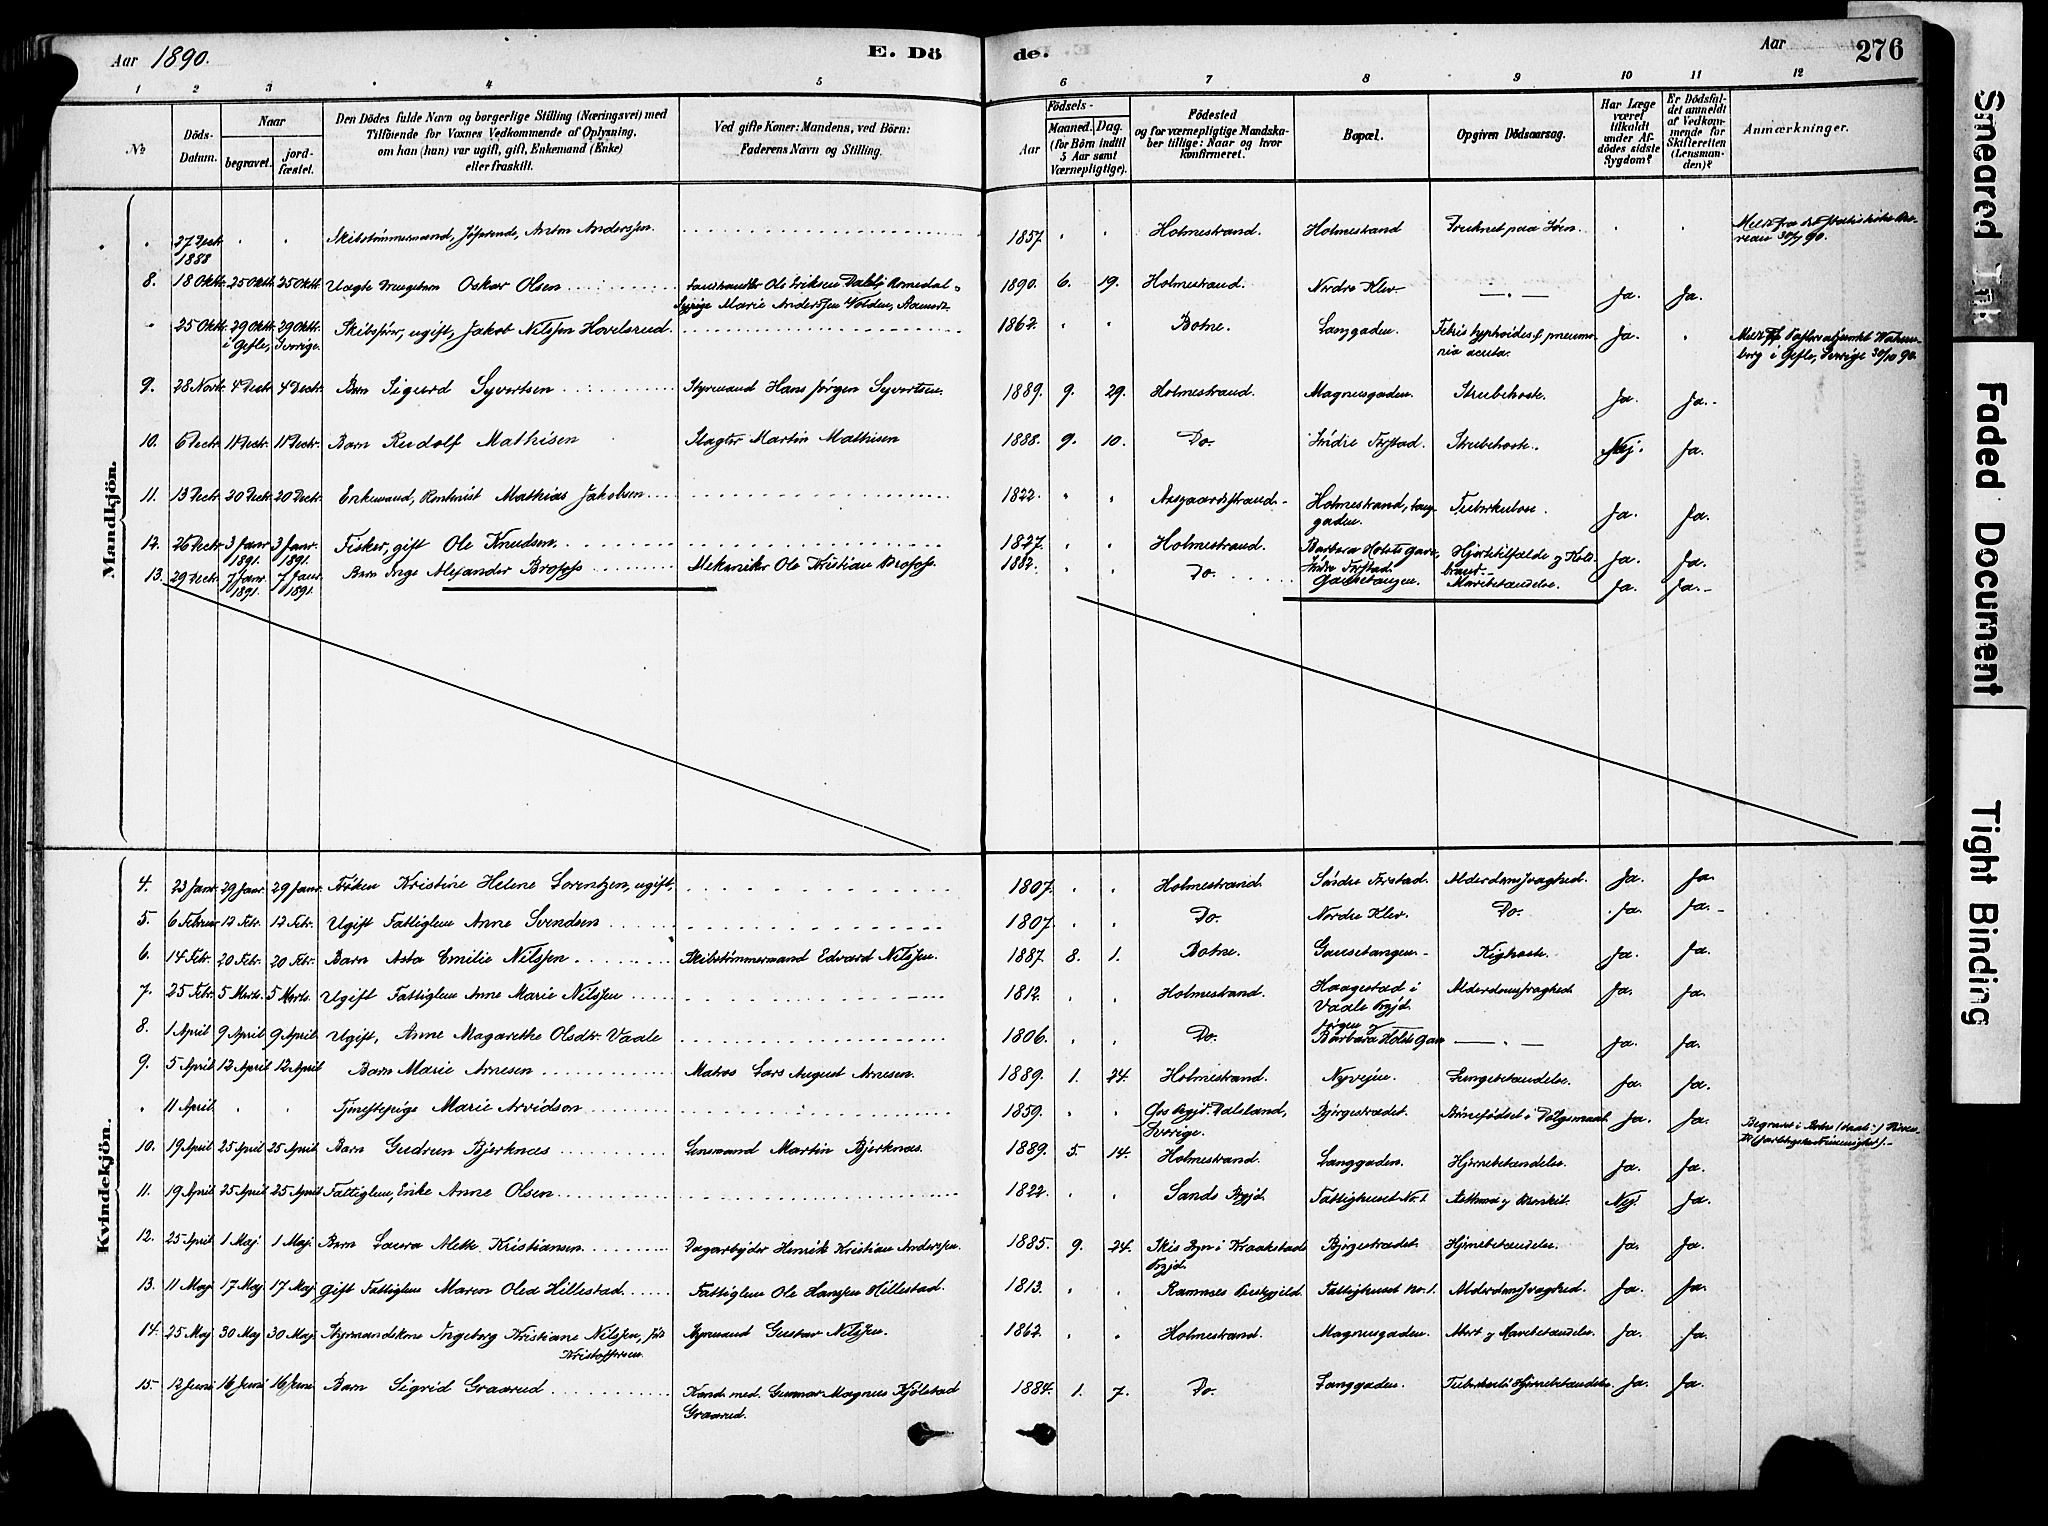 Aar 1890.
E. Dö
de.
Aar
276
1 2 3 4 5 6 7 8 9 10 11 12
No
Döds-Datum.
Naar
begravet.
jord-fæstet.
Den Dödes fulde Navn og borgerlige Stilling (Næringsvei) med
Tilföiende for Voxnes Vedkommende af Oplysning,
om han (hun) var ugift, gift, Enkemand (Enke)
eller fraskilt.
Ved gifte Koner: Mandens, ved Börn:
Faderens Navn og Stilling.
Födsels-
Aar
Maaned.
Dag.
(for Börn indtil
5 Aar samt
Værnepligtige).
Födested
og for værnepligtige Mandska-
ber tillige: Naar og hvor
konfirmeret.
Bopæl.
Opgiven Dödsaarsag.
Har Læge
været
tilkaldt
under Af-
dödes sidste
Sygdom?
Er Dödsfal-
det anmeldt
af Vedkom-
mende for
Skifteretten
(Lensman-
den)?
Anmærkninger.
Mandkjön.
" 27 Decb. 1888 Skibstømmermand, Anton Anderssen. 1857. Holmestrand. Holmestrand Druknet paa Søen.
8. 18 Oktr. 25 Oktr. 25 Oktr. Uægte Drengebarn Oskar Olsen Ole Eriksen Romedal
Pige Marie Anderssen 1890. 6. 19. Holmestrand. Nordre Klev. — " — Ja. Ja.
" 25 Oktr. 29 Oktr. 29 Oktr. i Gefle, Sverige. Skibsfører, ugift, Jakob Nilssen Hovelsrud 1862. Botne. Langgaden. Febris typhoides & pneumonia acuta. Ja. i Gefle, Sverige 30/10 90.
9. 28 Novb. 4 Decbr. 4 Decbr. Barn Sigurd Syvertsen Styrmand Hans Jørgen Syvertsen. 1889. 9. 29. Holmestrand. Magnusgaden. Strubehoste. Ja. Ja.
10. 6 Decbr. 11 Decbr. 11 Decbr. Barn Rudolf Mathisen Slagter Martin Mathisen 1888. 9. 10. Do. Søndre Forstad. Strubehoste. Nej. Ja.
11. 13 Decbr. 20 Decbr. 20 Decbr. Enkemand, Rentenist Mathias Jakobsen 1822. Aasgaardsstrand. Holmestrand, Langgaden. Tuberkulose. Ja. Ja.
12. 26 Decbr. 3 Janr. 1891. 3 Janr. 1891. Fisker, gift Ole Knudsen 1827. Holmestrand. Barbara Holsts Gave, Søndre Forstad. Hjertefeil & Koldbrand. Ja. Ja.
13. 29 Decbr. 7 Janr. 1891. 7 Janr. 1891. Barn Inga Alexander Brofoss Mekaniker Ole Kristian Brofoss. 1882. Do. Gausetangen. Mavebetændelse. Ja. Ja.
Kvindekjön.
4. 23 Janr. 29 Janr. 29 Janr. Frøken Kristine Helene Lorentzen, ugift. 1807. Holmestrand. Søndre Forstad. Alderdomssvaghed. Ja. Ja.
5. 6 Februar 12 Febr. 12 Febr. Ugift Fattiglem Anne Svendsen 1807. Do. Nordre Klev. Do. Ja. Ja.
6. 14 Febr. 20 Febr. 20 Febr. Barn Asta Emilie Nilssen Skibstømmermand Edvard Nilssen. 1887. 8. 1. Botne. Gausetangen. Kighoste. Ja. Ja.
7. 25 Febr. 5 Marts. 5 Marts. Ugift Fattiglem Anne Marie Nilssen 1812. Holmestrand. Haagestad i Vaale Prgjd. Alderdomssvaghed. Ja. Ja.
8. 1 April 9 April 9 April Ugift, Anne Magarethe Olsdtr. Vaale 1806. Do. Jørgen & Barbara Holsts Gave — " — Ja. Ja.
9. 5 April 12 April 12 April Barn Marie Arnesen Matros Lars August Arnesen. 1889. 1. 24. Holmestrand. Nyvejen. Lungebetændelse. Ja. Ja.
" 11 April. Tjenestepige Marie Arvidson 1859. Dalsland, Sverige. Bjørgestrædet. Ja. Ja. Begravet i Botne
10. 19 April 25 April 25 April Barn Gudrun Bjerknæs Lensmand Martin Bjerknæs. 1889. 5. 14. Holmestrand. Langgaden. Hjernebetændelse. Ja. Ja.
11. 19 April 25 April 25 April Fattiglem, Enke Anne Olsen 1822. Sands Prgjd. Fattighuset No. 1. Asthma & Bronkit. Nej. Ja.
12. 25 April 1 Maj 1 Maj. Barn Laura Mette Kristiansen Dagarbejder Henrik Kristian Anderssen. 1885. 9. 24. Skis Sogn i Kraakstads Prgjd. Bjørgestrædet. Hjernebetændelse. Ja. Ja.
13. 11 Maj 17 Maj 17 Maj Gift Fattiglem Maren Olea Hillestad Fattiglem Ole Hanssen Hillestad. 1813. Ramnes Prestegjeld. Fattighuset No. 1. Alderdomssvaghed. Ja. Ja.
14. 25 Maj 30 Maj 30 Maj Styrmandskone Ingeborg Kristiane Nilssen, født Kristoffersen. Styrmand Gustav Nilssen. 1862. Holmestrand. Magnusgaden. Abort & Mavebetændelse. Ja. Ja.
15. 12 Juni 16 Juni 16 Juni. Barn Sigrid Graarud Kand. med. Gunnar Magnus Kjølstad Graarud. 1884. 1. 7. Do. Langgaden. Tuberkuløs Hjernebetændelse. Ja. Ja.
Smeared Ink
Faded Document
Tight Binding